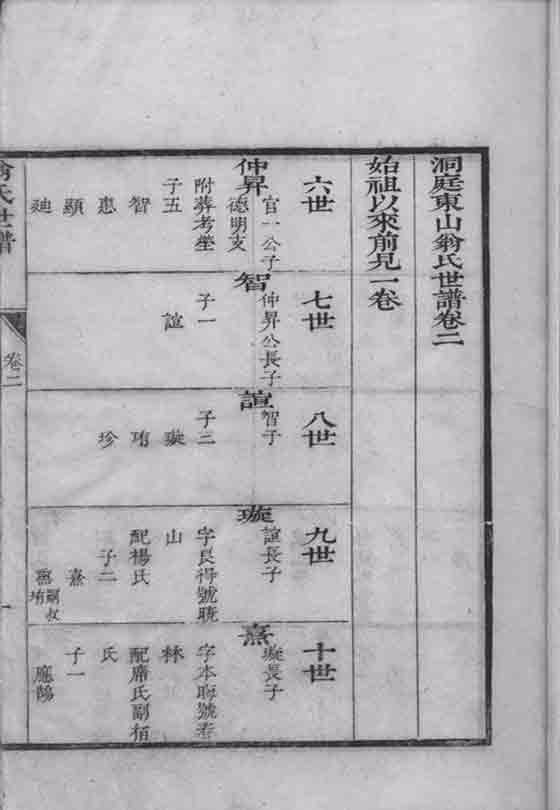 洞庭東山翁氏世譜卷二
始祖以來前見一卷
六世
仲昇
官一公子
德明支
附葬考塋
子五
智
惠
顯
七世
智
仲昇公長子
子一
誼
八世
誼
智子
子三
璇
珍
九世
璇
誼長子
字良得號曉
山
配楊氏
子二
熹
嗣叔
十世
熹
璇長子
字本晦號春
林
配席氏副柏
氏
子一
應陽
翁氏世譜
卷二
一